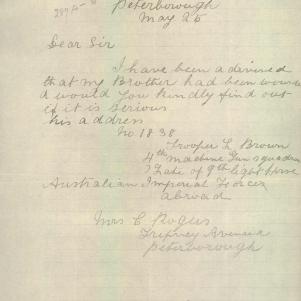 Peterborough
May 25
Dear Sir
I have been adviced
that my Brother had been wound
d would you kindly find out
if it is serious
his address
No 1838
Trooper L Brown
4th machine Gun squadron
late of 9th light horse
Australian Imperial Forces
abroad
Mrs C Rogers
Peterborough